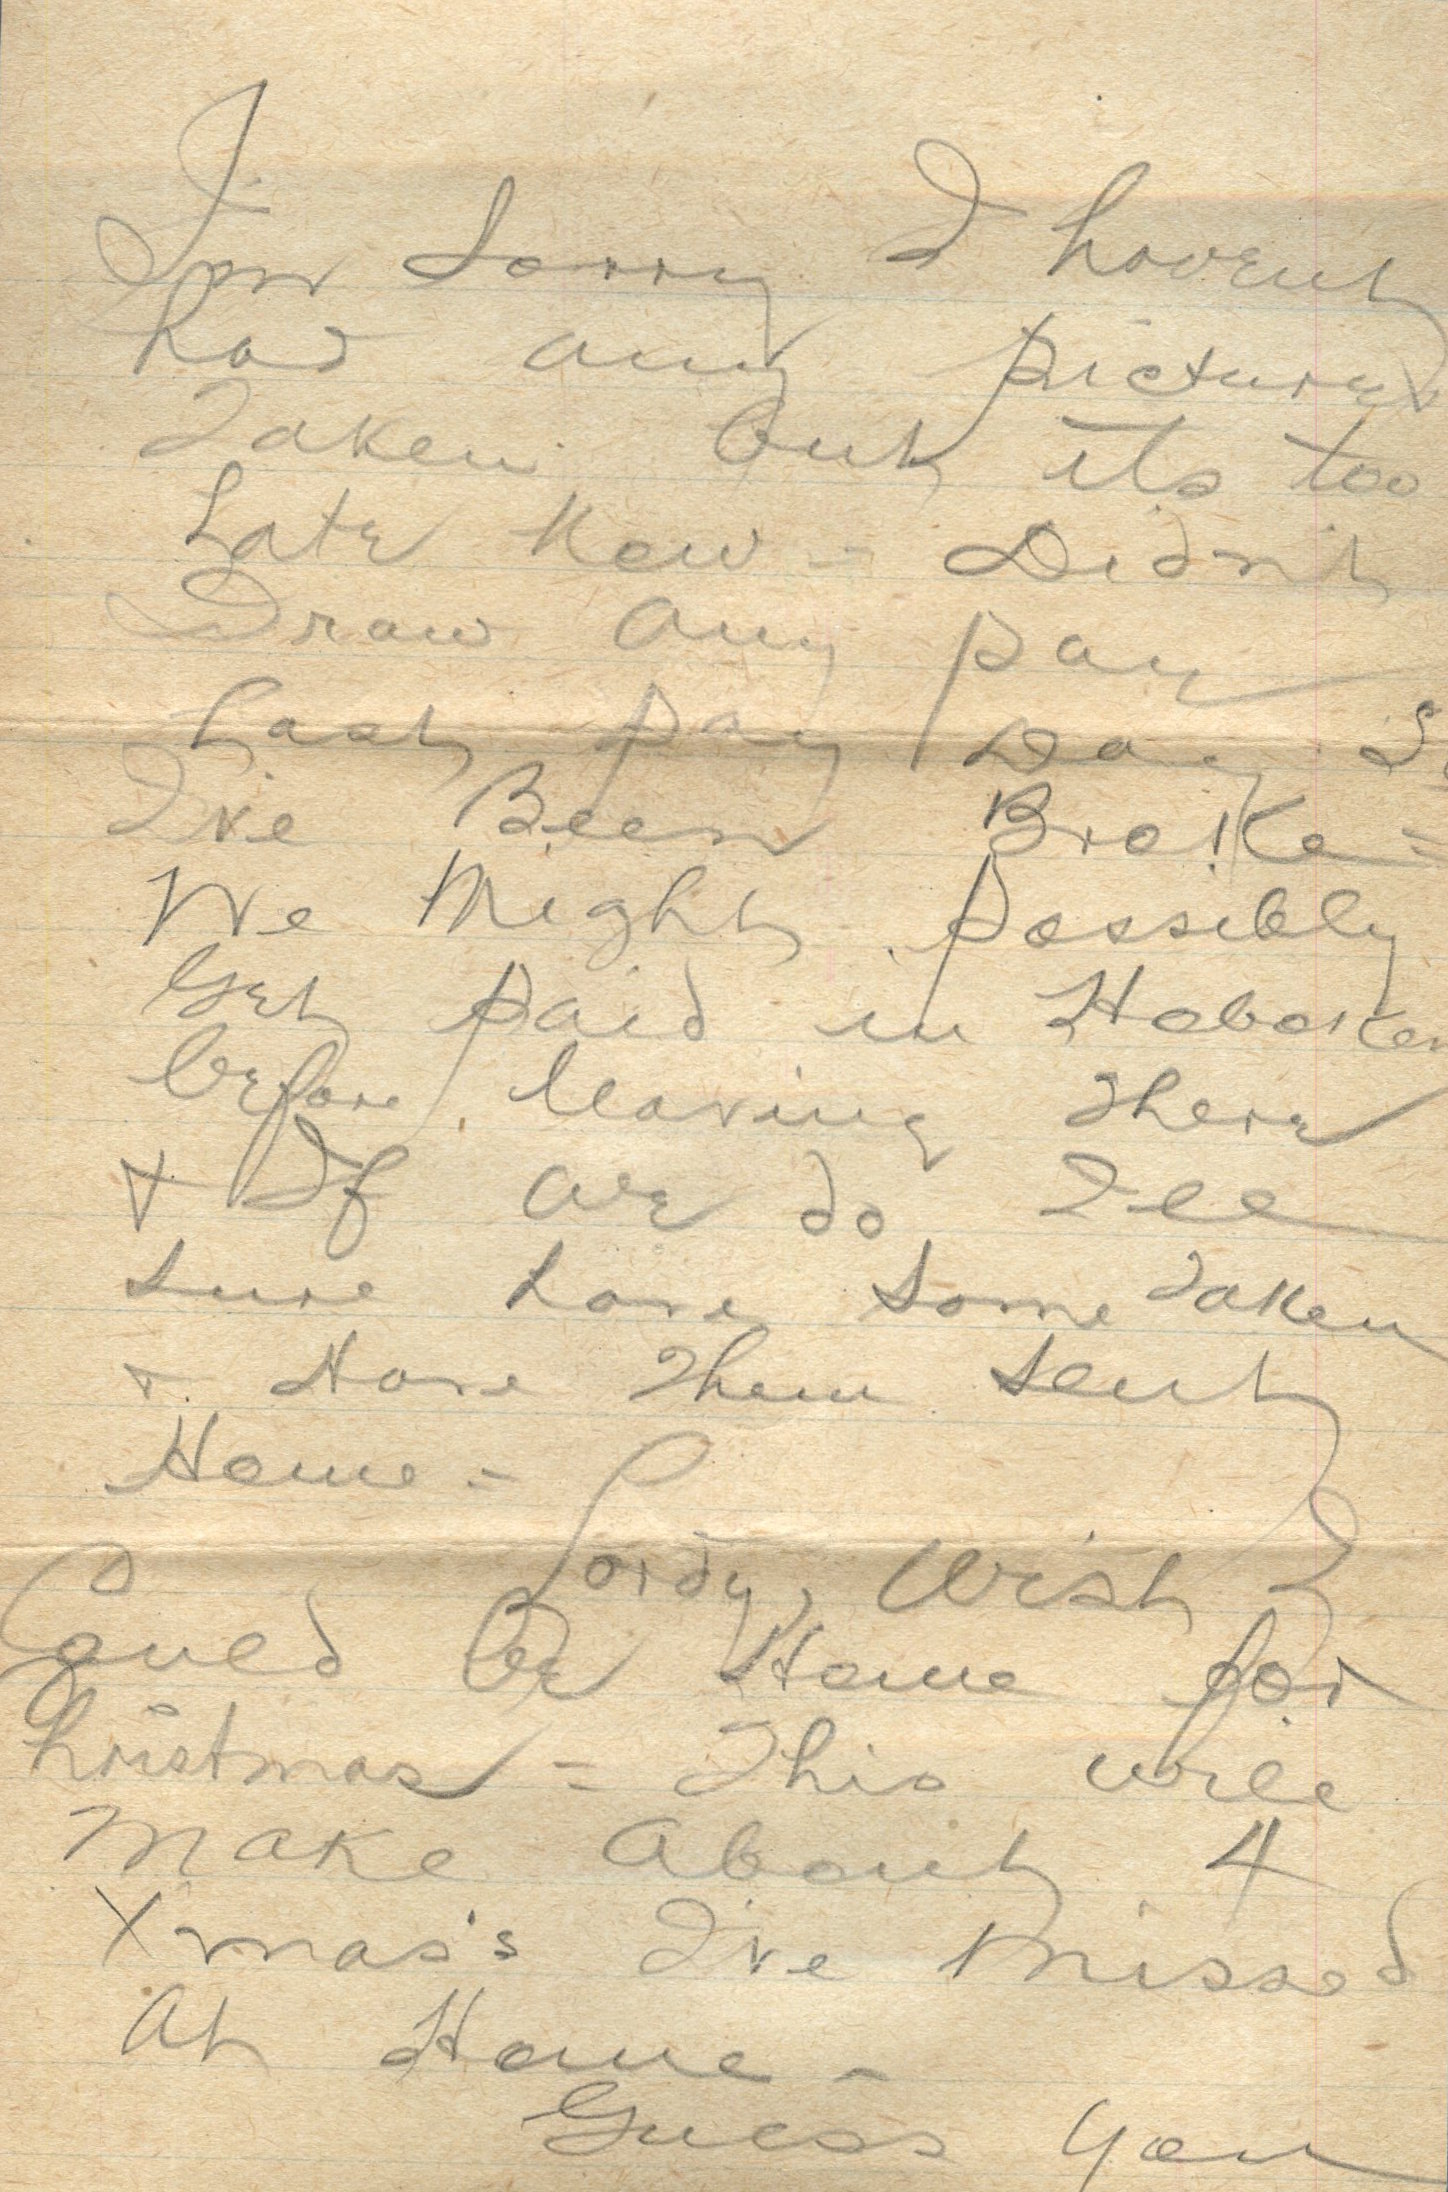 I'm Sorry I havent
had any pictures
Taken but its too
Late Now = Didn't
Draw any pay
Last pay Day So
I've Been Broke =
We Might possibly
Get paid in Hoboken
before leaving There
& If we do I'll
Sure have Some Taken
& Have Them Sent
Home =
Lordy, Wish I
Could be Home for
Christmas = This will
Make About 4
Xmas's I've Missed
At Home -
Guess you